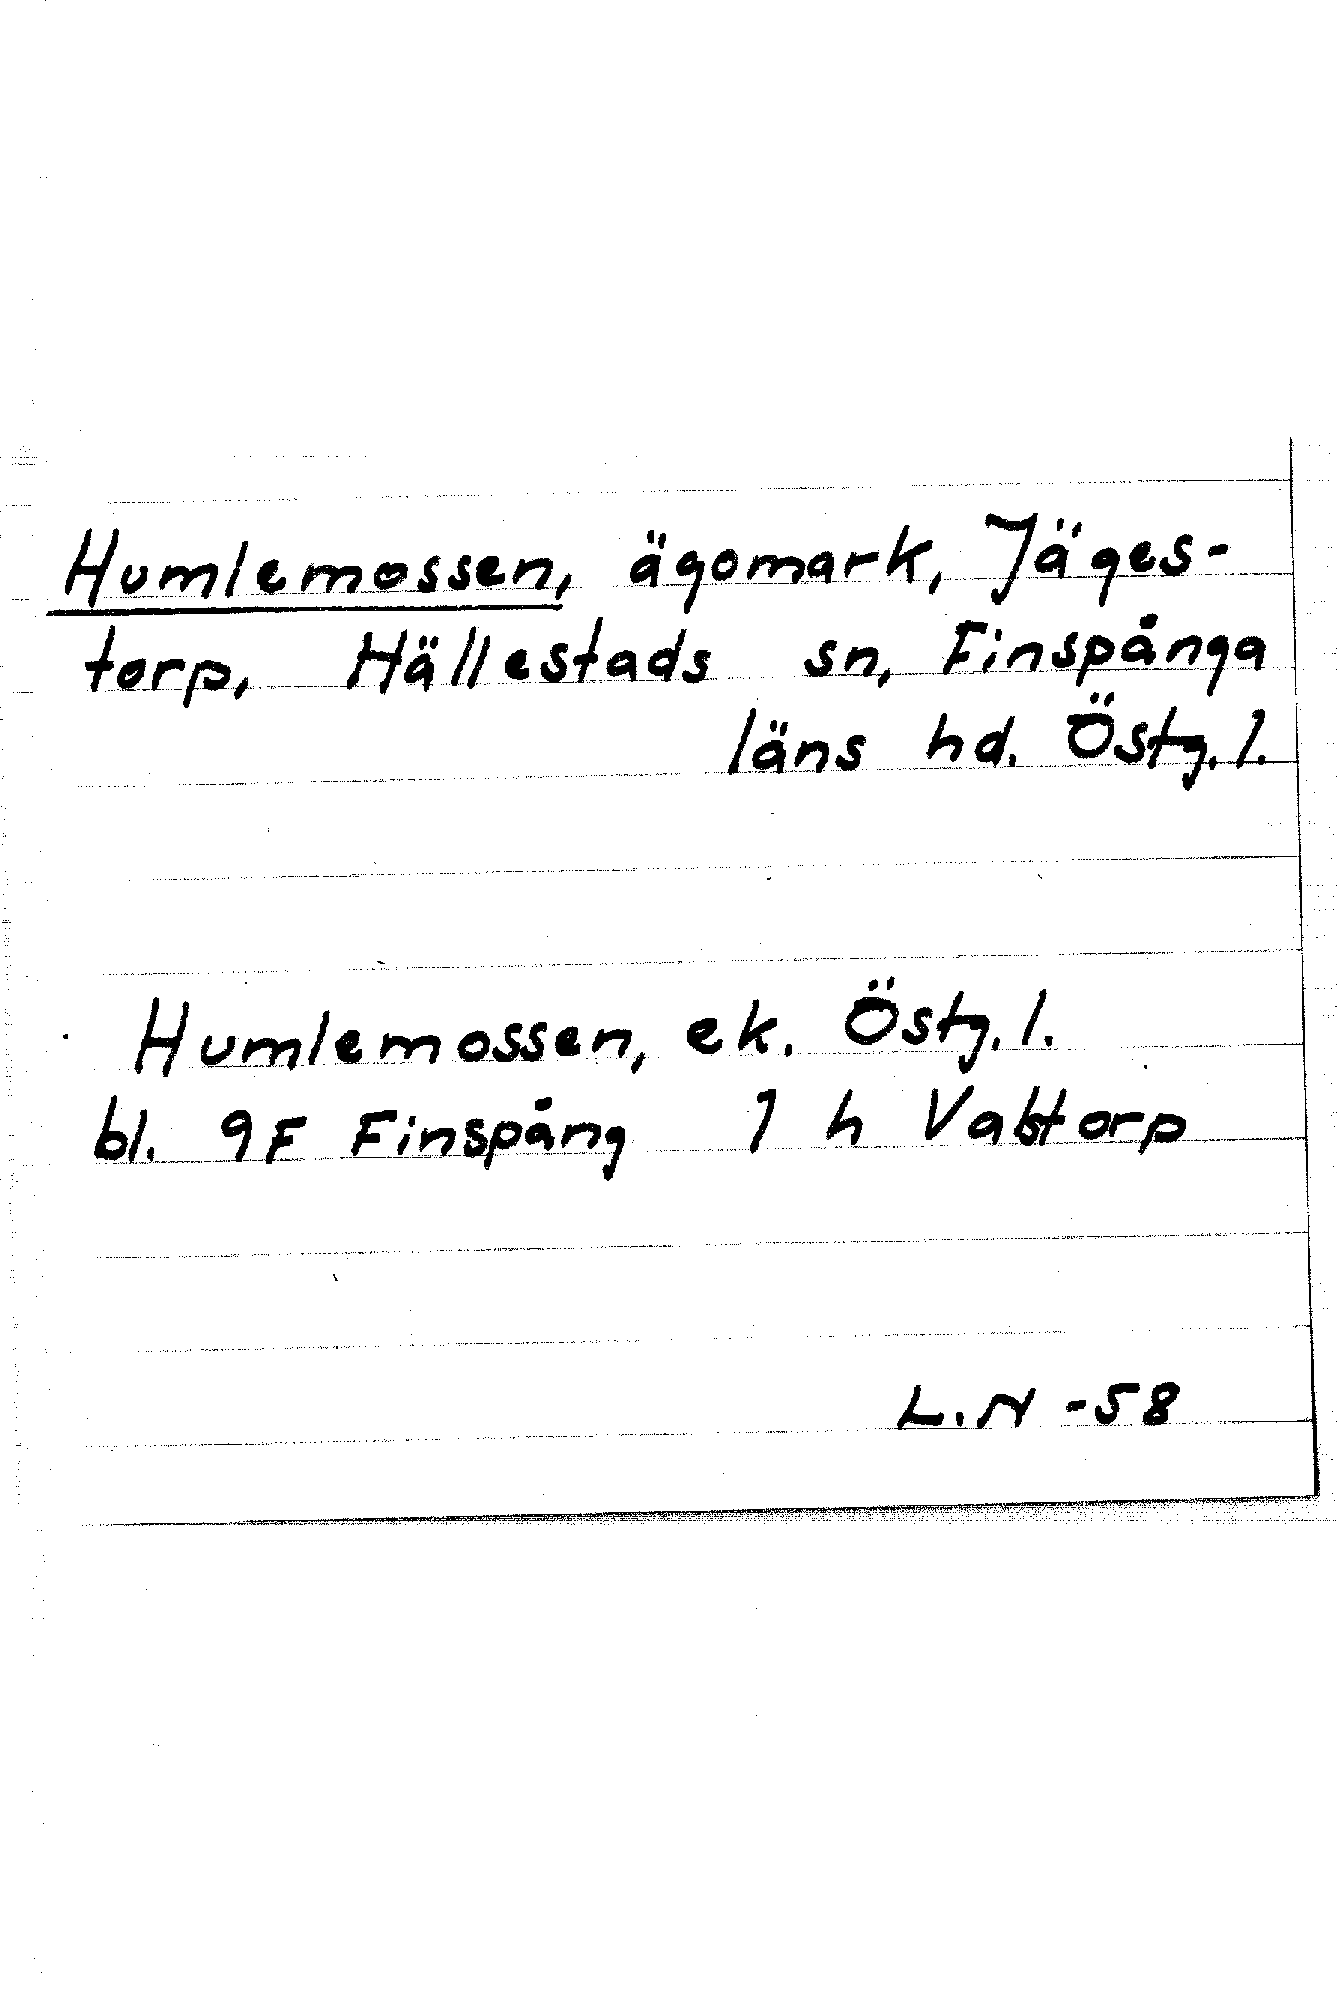 Humlemossen, ägomark, Jäges-
torp, Hällestads sn, Finspånga
läns hd. Östg. l.
Humlemossen, ek. Östg. l.
bl. 9F Finspång 1 h
L.N -58